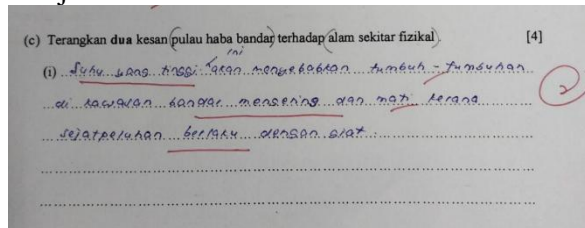 (c) Terangkan dua kesan pulau haba bandar terhadap alam sekitar fizikal. [4]
ini
(i) Suhu yang tinggi akan menyebabkan tumbuh-tumbuhan
di kawasan bandar mengering dan mati kerana
sejatpeluhan berlaku dengan giat.
2